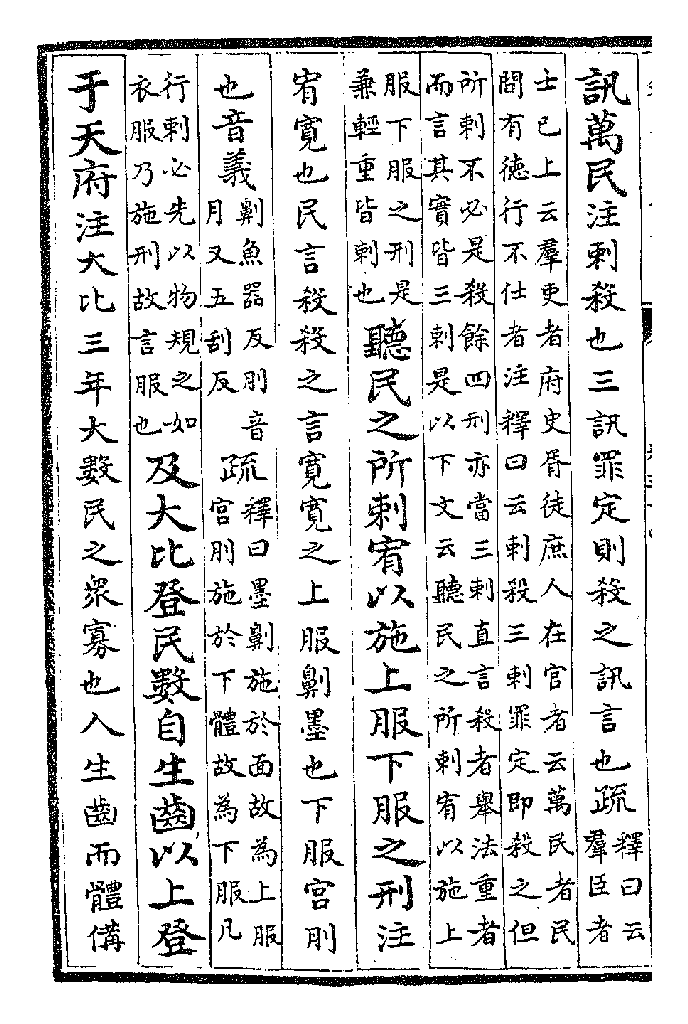 訊萬民注刺殺也三訊罪定則殺之訊言也疏釋曰云
羣臣者
士巳上云羣吏者府史胥徒庶人在官者云萬民者民
問有徳行不仕者注釋曰云刺殺三刺罪定即殺之但
所刺不必是殺餘四刑亦當三刺直言殺者舉法重者
而言其實皆三刺是以下文云聽民之所刺宥以施上
服下服之刑是
兼輕重皆刺也聽民之所刺宥以施上服下服之刑注
宥寛也民言殺殺之言寛寛之上服劓墨也下服宫刖
也音義劓魚器反刖音
月又五刮反疏釋曰墨劓施於面故為上服
宫刖施於下體故為下服凡
行刺必先以物規之如
衣服乃施刑故言服也及大比登民數自生齒以上登
于天府注大比三年大數民之衆寡也人生齒而體備